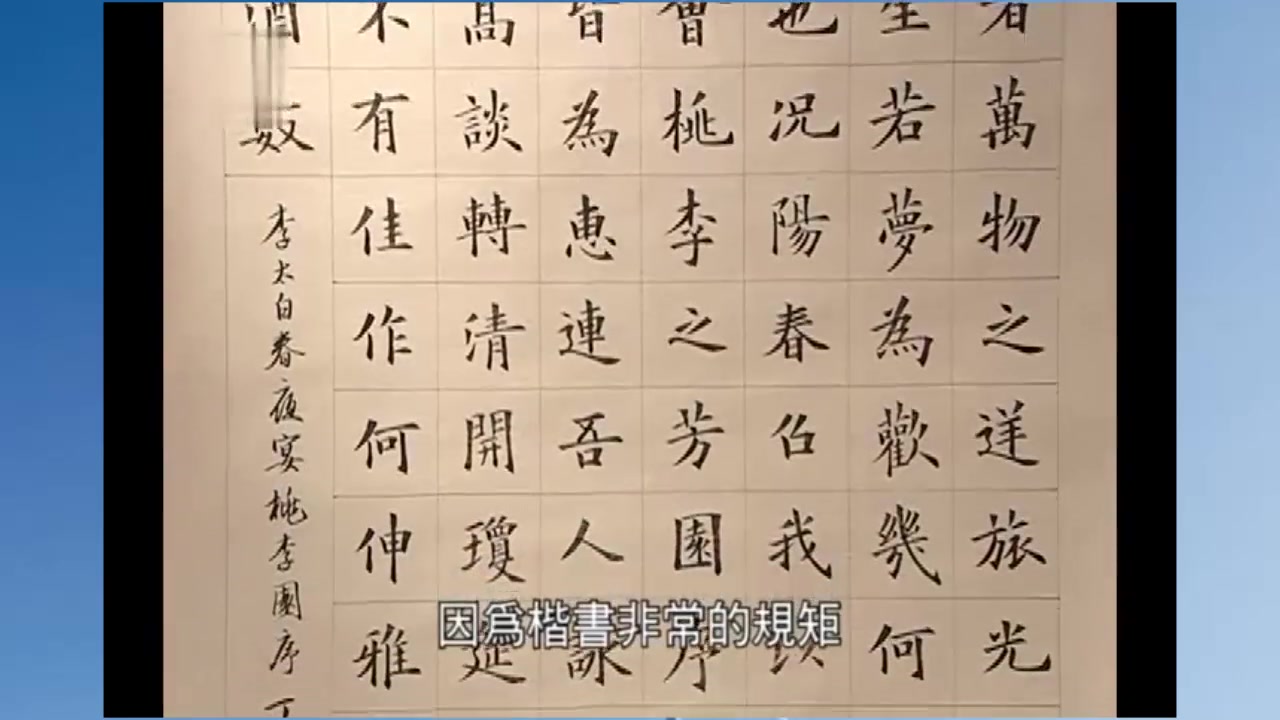 者萬物之逆旅光
生若夢為歡幾何
也況陽春召我以
會桃李之芳園序
皆為惠連吾人詠
高談轉清開瓊筵
不有佳作何伸雅
酒數
李太白春夜宴桃李園序
因為楷書非常的規矩